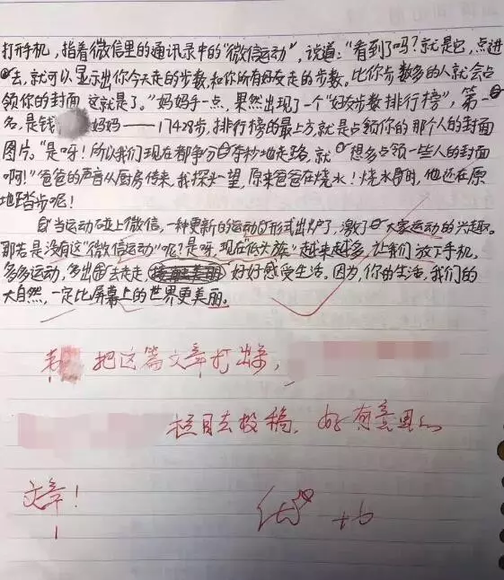 打开手机，指着微信里的通讯录中的“微信运动”，说道：“看到了吗？就是它，点进
去，就可以显示出你今天走的步数和你所有好友走的步数。比你步数多的人就会占
领你的封面，这就是了。”妈妈手一点，果然出现了一个“好友步数排行榜”，第一
名，是钱 妈妈——17428步，排行榜的最上方就是占领你的那个人的封面
图片。“是呀！所以我们现在都争分夺秒地走路，就想多占领一些人的封面
啊！”爸爸的声音从厨房传来，我探头一望，原来爸爸在烧水！烧水时，他还在原
地踏步呢！
当运动碰上微信，一种更新的运动形式出炉了，激了大家运动的兴趣。
那若是没有这“微信运动”呢？是呀，现在“低头族”越来越多，让我们放下手机，
多多运动，多出去走走，好好感受生活。因为，你的生活，我们的
大自然，一定比屏幕上的世界更美丽。
把这篇文章打出来，
栏目去投稿，好有意思的
文章！
优 +6